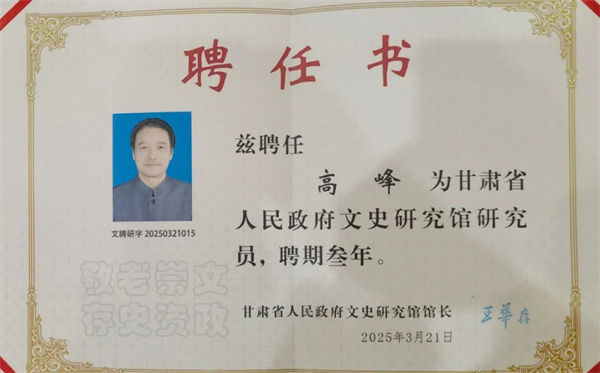 聘任书
兹聘任
高峰 为甘肃省
人民政府文史研究馆研究
员，聘期叁年。
文聘研字 20250321015
敬老崇文
存史资政
甘肃省人民政府文史研究馆馆长 王华存
2025年3月21日